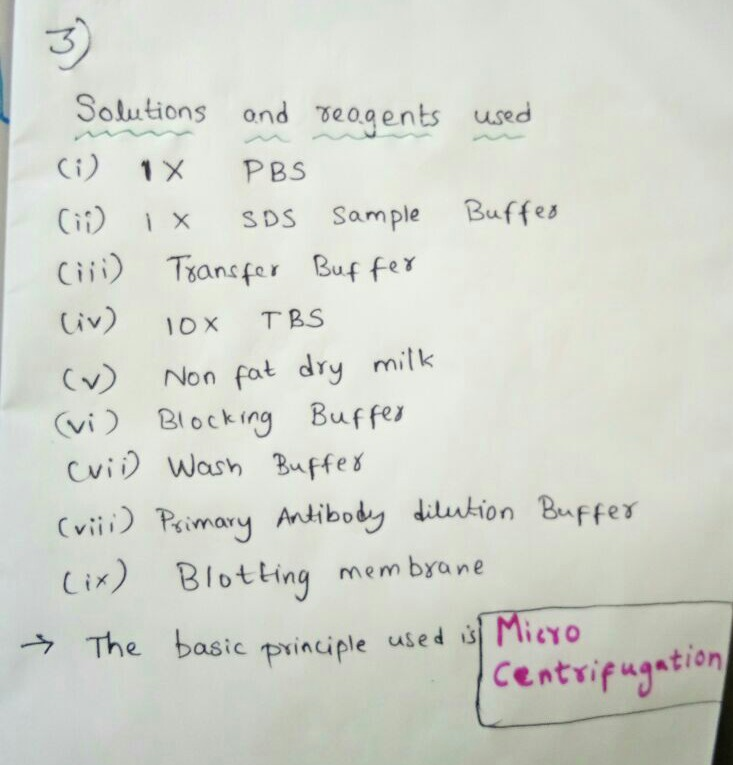 3)
Solutions and reagents used
(i) 1X PBS
(ii) 1X SDS Sample Buffer
(iii) Transfer Buffer
(iv) 10X TBS
(v) Non fat dry milk
(vi) Blocking Buffer
(vii) Wash Buffer
(viii) Primary Antibody dilution Buffer
(ix) Blotting membrane
→ The basic principle used is Micro
Centrifugation